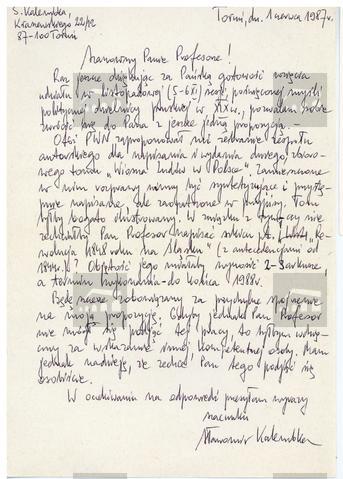 S. Kalembka, Toruń, dn. 1 czerwca 1987 r.
Kraszewskiego 22/
87-100 Toruń
Szanowny Panie Profesorze!
Raz jeszcze dziękując za Pańską gotowość wzięcia
udziału w listopadowej (5-6 XI) sesji, poświęconej myśli
politycznej dzielnicy pruskiej w XIX w., pozwalam sobie
zwrócić się do Pana z jeszcze jedną propozycją.
Otóż PWN zaproponował mi zebranie zespołu
autorskiego dla napisania i wydania dużego, zbioro-
wego tomu „Wiosna Ludów w Polsce". Zamieszczone
w nim rozprawy winny być syntetyzujące i przystę-
pnie napisane, ale zaopatrzone w przypisy. Tom
byłby bogato ilustrowany. W związku z tym czy nie
zechciałby Pan Profesor napisać szkicu pt. „Re-
wolucja 1848 roku na Śląsku" (z antecedencjami od
1844 r.)? Objętość jego miałaby wynosić 2- arkusze,
a termin wykonania - do końca 1988 r.
Będę szczerze zobowiązany za przychylne spojrzenie
na moją propozycję. Gdyby jednak Pan Profesor
nie mógł się podjąć tej pracy, to byłbym wdzię-
czny za wskazanie innej kompetentnej osoby. Mam
jednak nadzieję, że zechce Pan tego podjąć się
osobiście.
W oczekiwaniu na odpowiedź przesyłam wyrazy
szacunku
Sławomir Kalembka